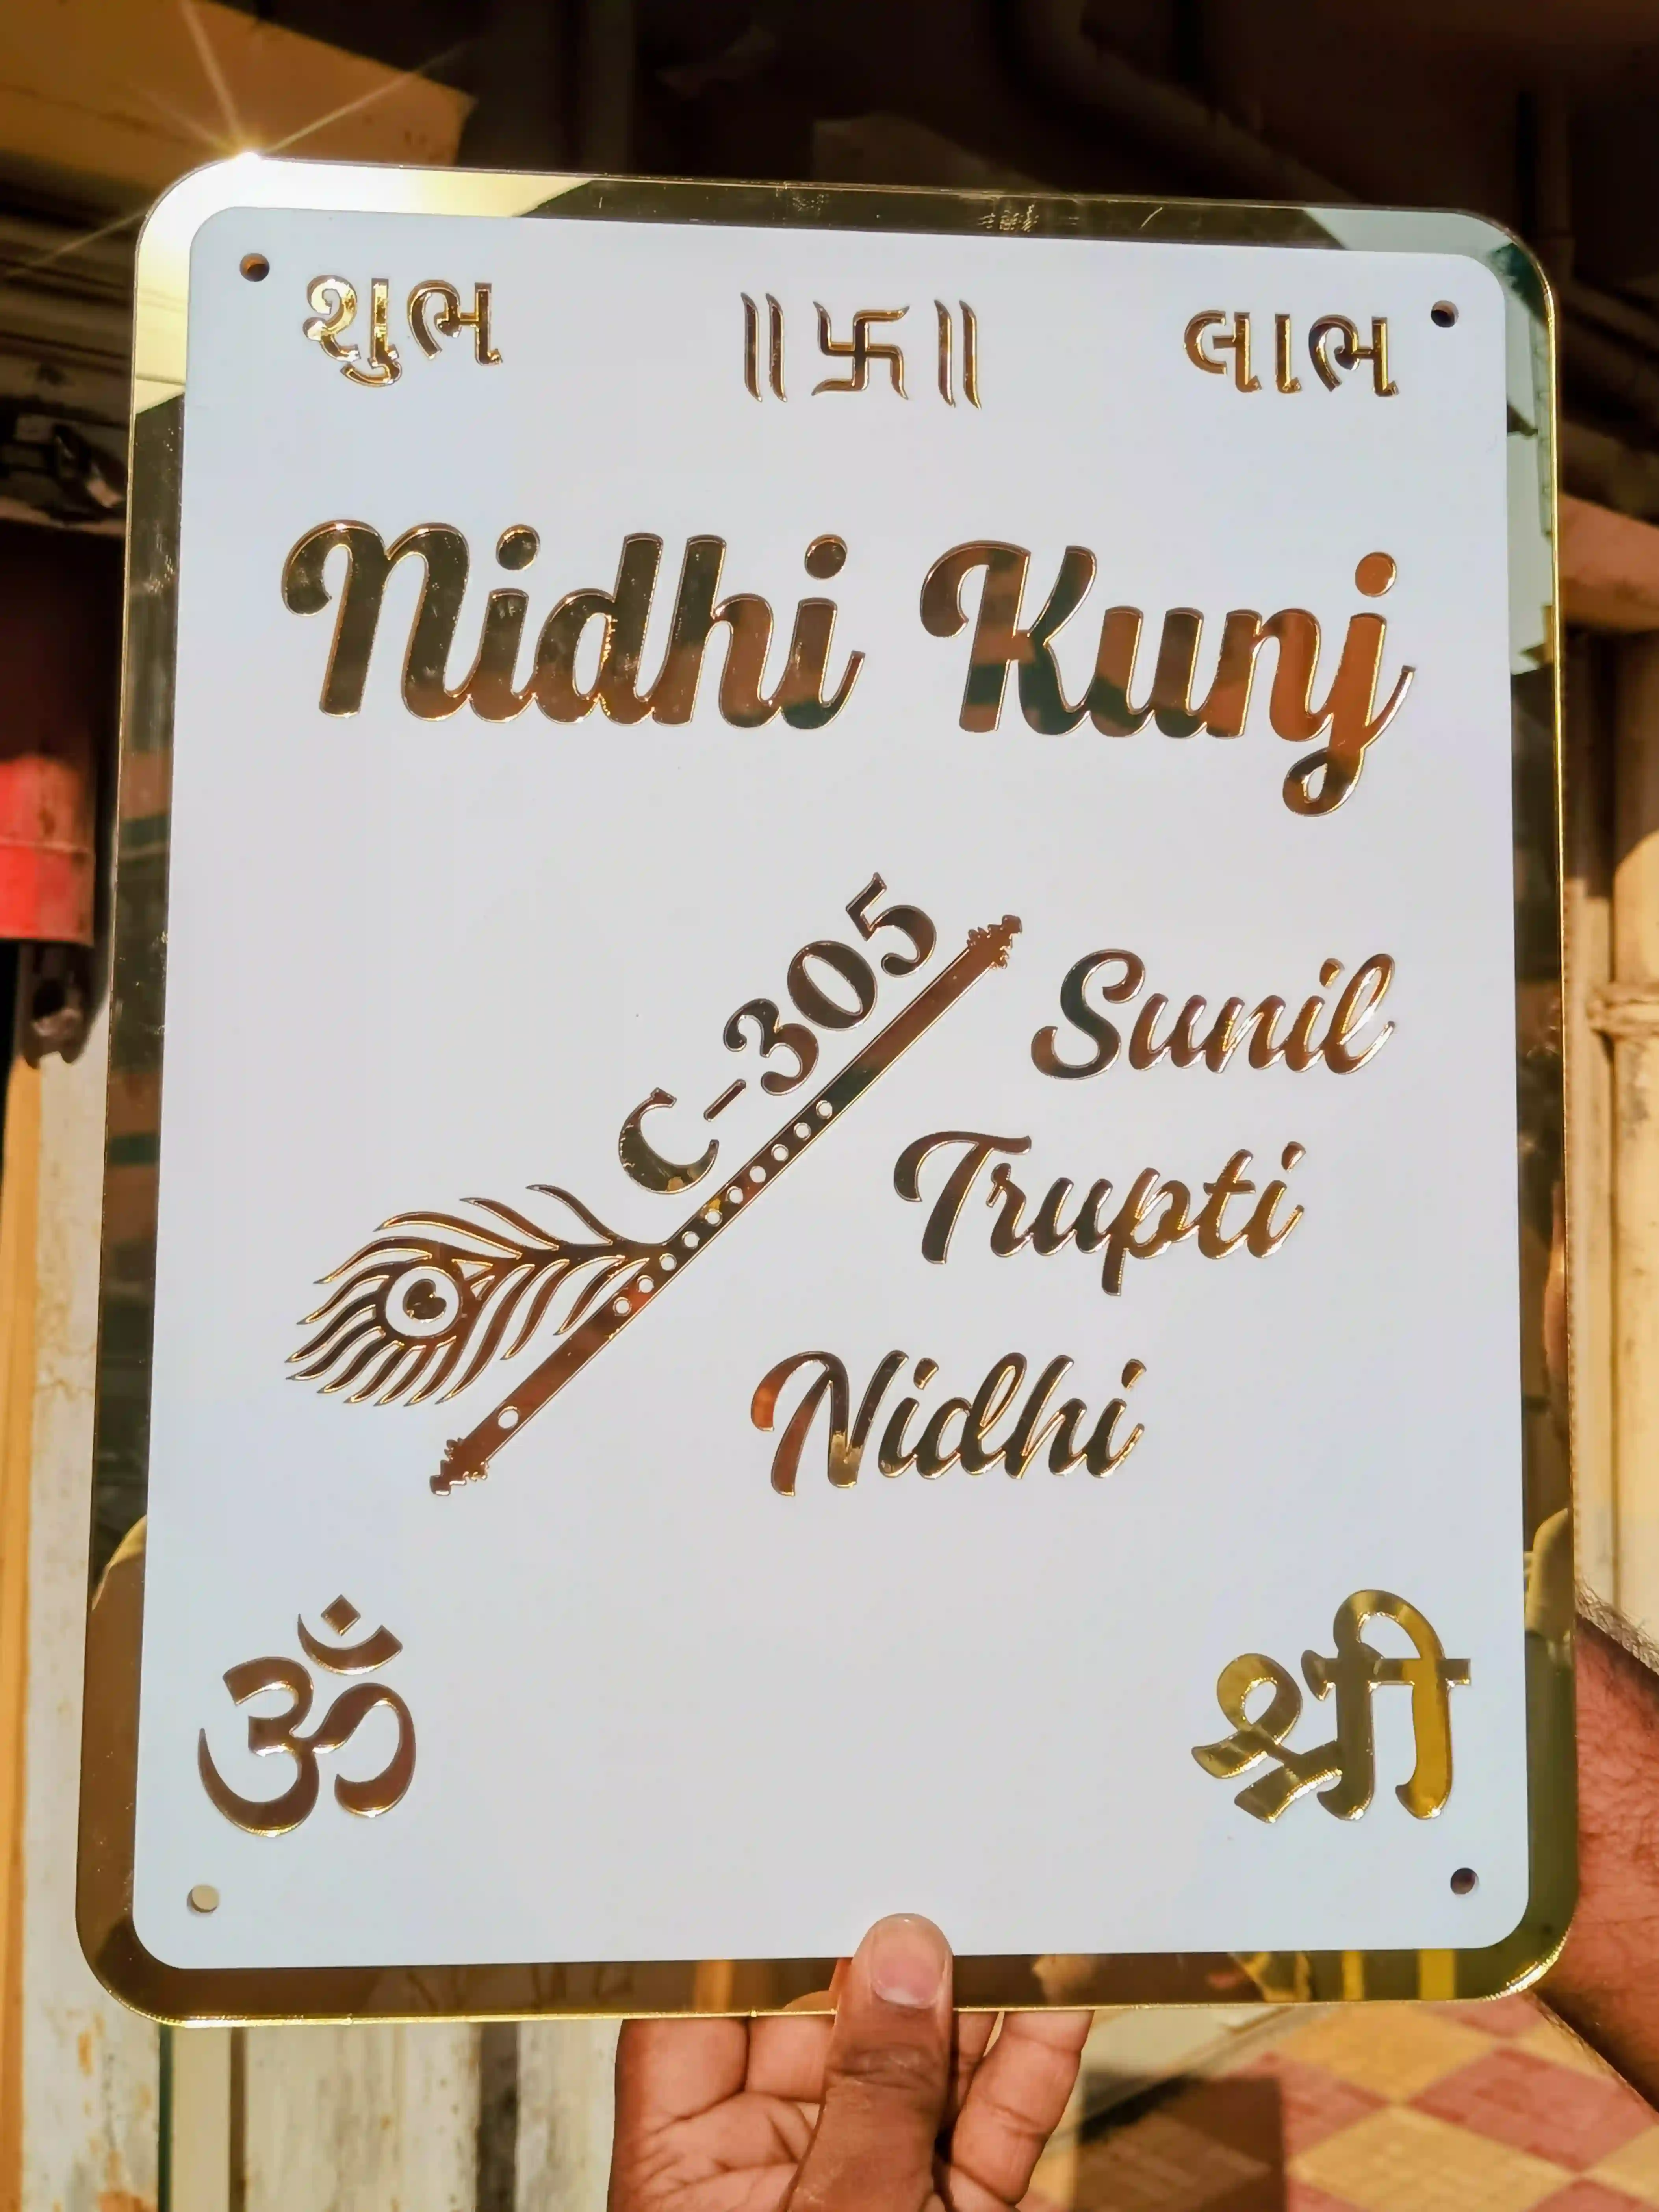 શુભ ॥卐॥ લાભ
Nidhi Kunj
C-305
Sunil
Trupti
Nidhi
ॐ श्री